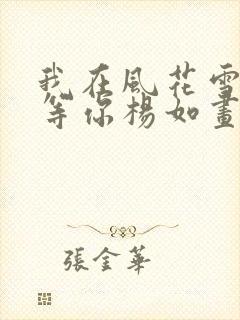 我在風花雪
等你楊如畫
張金華